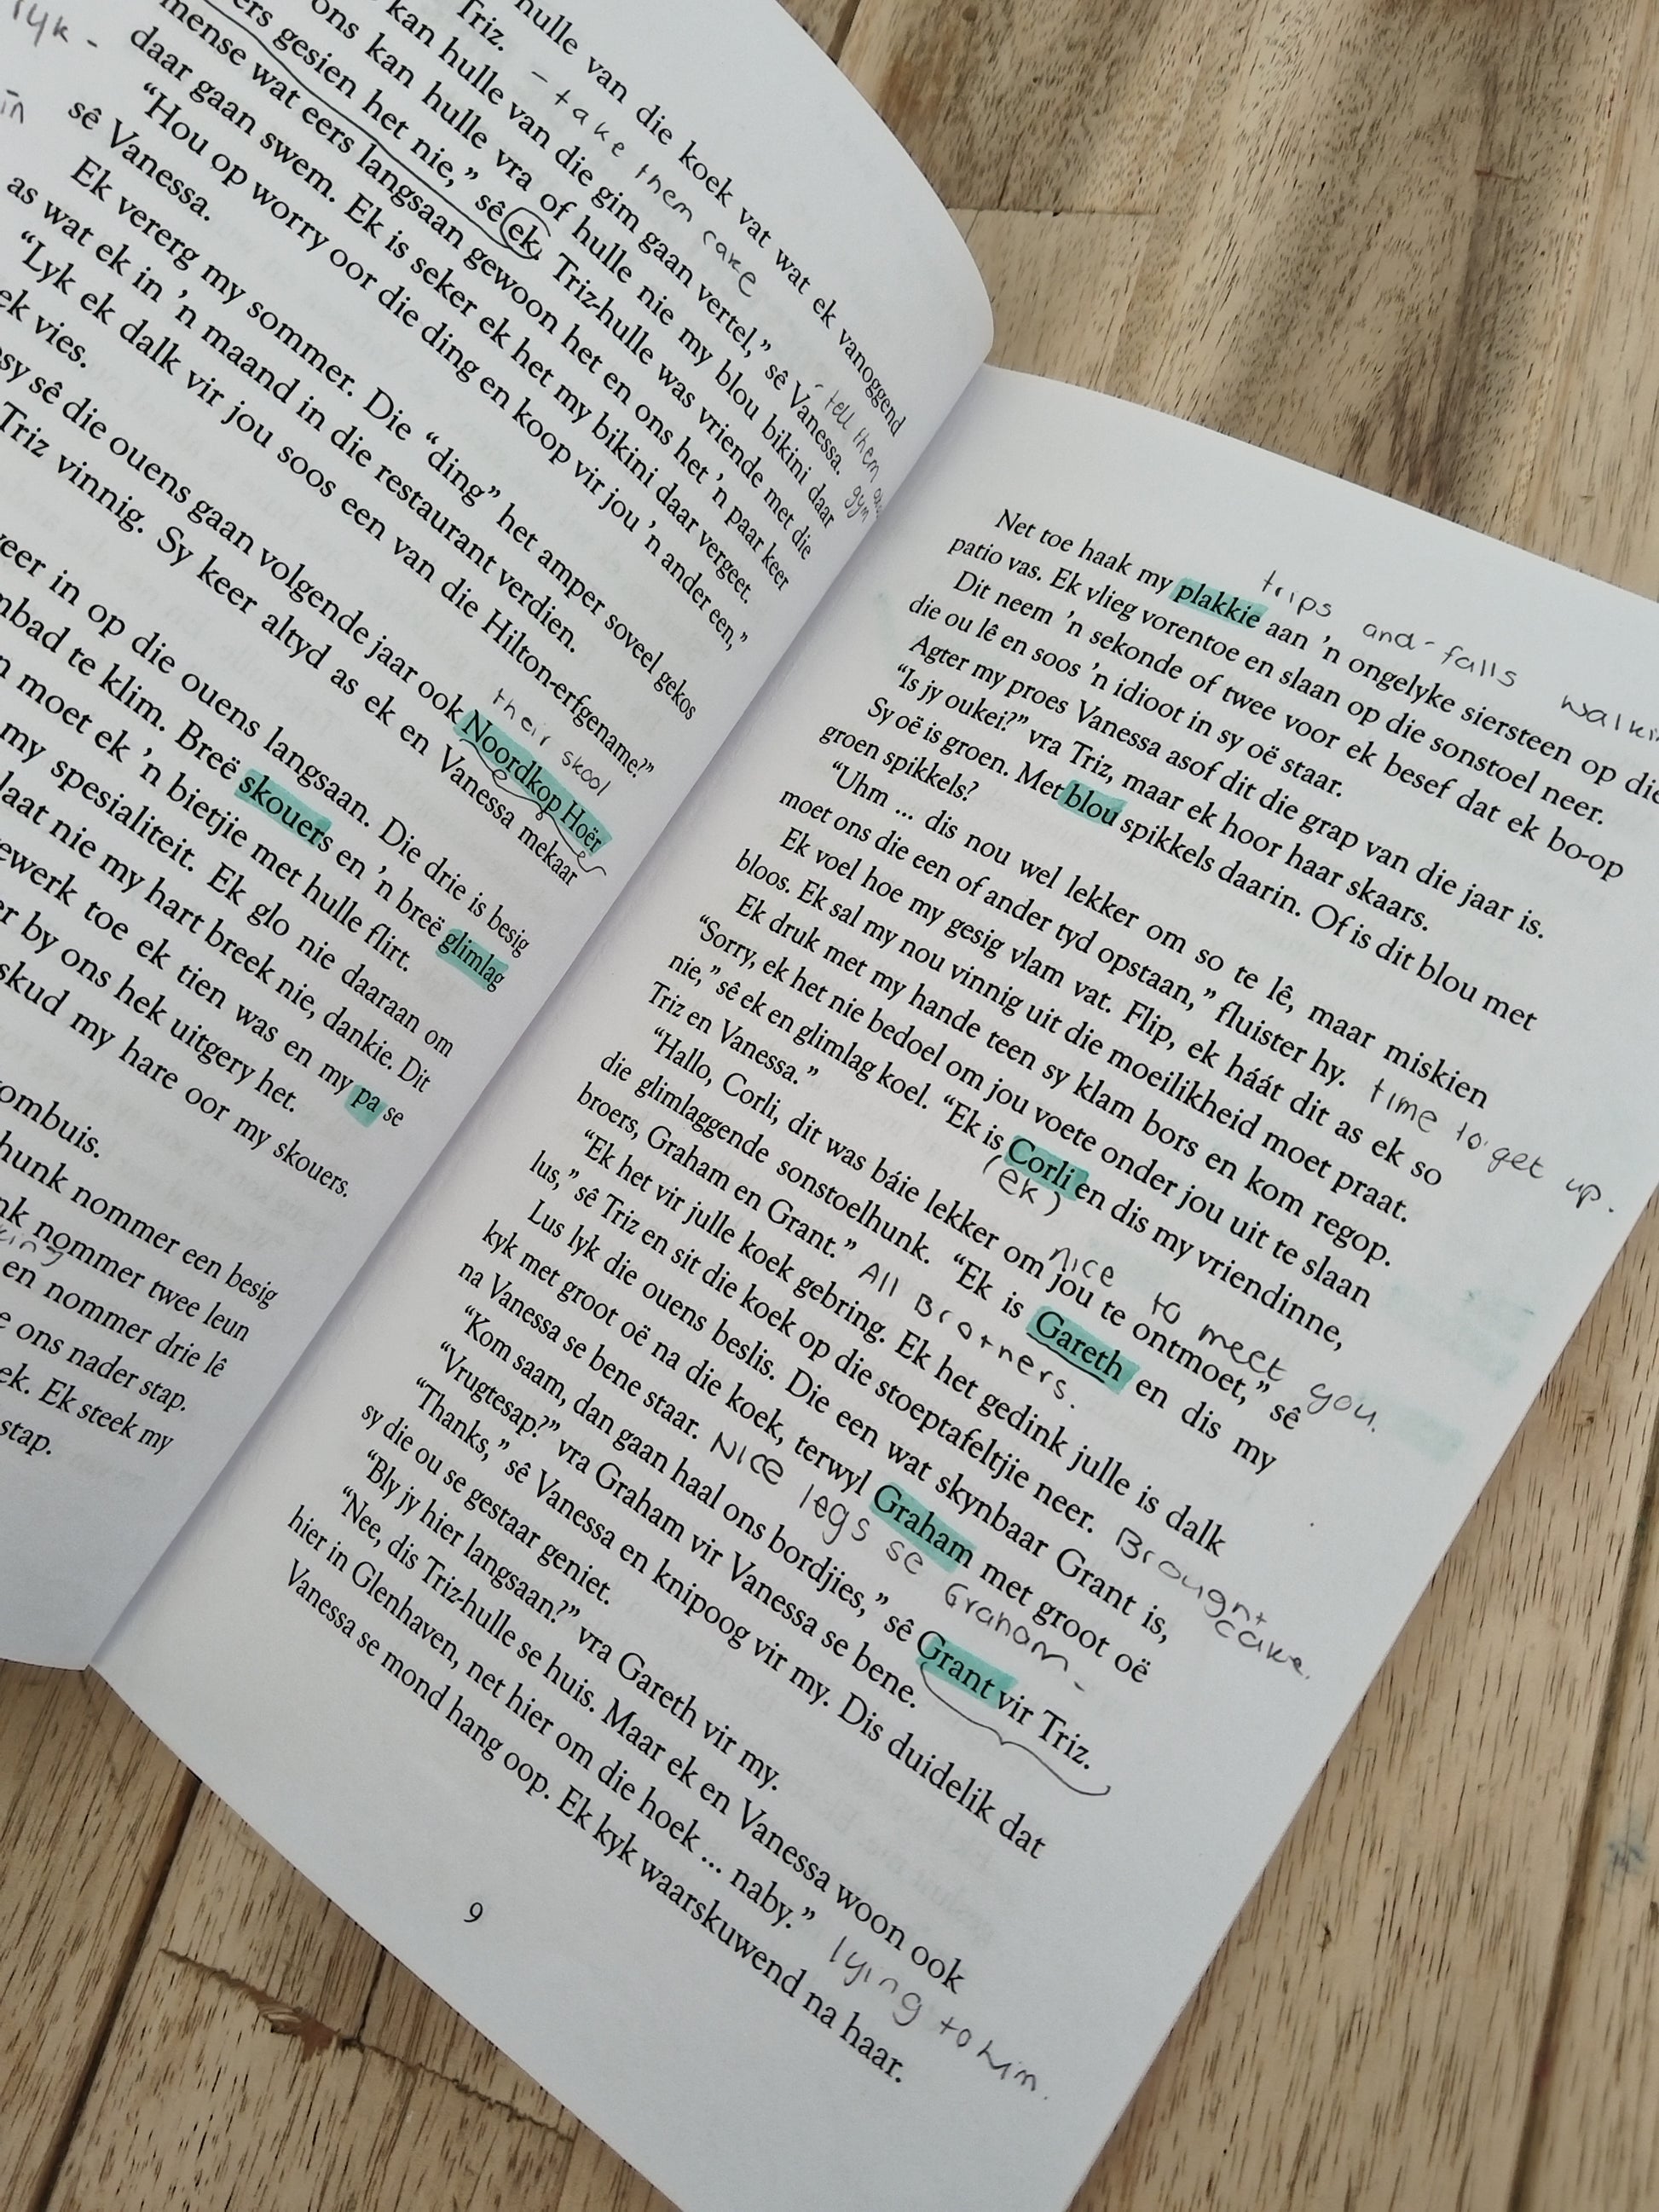 ryk -
in
hulle van die koek vat wat ek vanoggend
Triz. - take them cake
kan hulle van die gim gaan vertel,” sê Vanessa.
tell them
gym
ons kan hulle vra of hulle nie my blou bikini daar
gesien het nie,” sê ek. Triz-hulle was vriende met die
mense wat eers langsaan gewoon het en ons het ’n paar keer
daar gaan swem. Ek is seker ek het my bikini daar vergeet.
“Hou op worry oor die ding en koop vir jou ’n ander een,”
sê Vanessa.
Ek vererg my sommer. Die “ding” het amper soveel gekos
as wat ek in ’n maand in die restaurant verdien.
“Lyk ek dalk vir jou soos een van die Hilton-erfgename?”
ek vies.
sê die ouens gaan volgende jaar ook Noordkop Hoër
their skool
Triz vinnig. Sy keer altyd as ek en Vanessa mekaar
in op die ouens langsaan. Die drie is besig
te klim. Breë skouers en ’n breë glimlag
moet ek ’n bietjie met hulle flirt.
my spesialiteit. Ek glo nie daaraan om
laat nie my hart breek nie, dankie. Dit
toe ek tien was en my pa se
by ons hek uitgery het.
skud my hare oor my skouers.
hunk nommer een besig
nommer twee leun
en nommer drie lê
ons nader stap.
Ek steek my
stap.
Net toe haak my plakkie aan ’n ongelyke siersteen op die
trips and falls
patio vas. Ek vlieg vorentoe en slaan op die sonstoel neer.
Dit neem ’n sekonde of twee voor ek besef dat ek bo-op
die ou lê en soos ’n idioot in sy oë staar.
Agter my proes Vanessa asof dit die grap van die jaar is.
“Is jy oukei?” vra Triz, maar ek hoor haar skaars.
Sy oë is groen. Met blou spikkels daarin. Of is dit blou met
groen spikkels?
“Uhm ... dis nou wel lekker om so te lê, maar miskien
moet ons die een of ander tyd opstaan,” fluister hy. time to get up.
Ek voel hoe my gesig vlam vat. Flip, ek háát dit as ek so
bloos. Ek sal my nou vinnig uit die moeilikheid moet praat.
Ek druk met my hande teen sy klam bors en kom regop.
“Sorry, ek het nie bedoel om jou voete onder jou uit te slaan
nie,” sê ek en glimlag koel. “Ek is Corli en dis my vriendinne,
(ek)
Triz en Vanessa.”
nice to meet you.
“Hallo, Corli, dit was báie lekker om jou te ontmoet,” sê
die glimlaggende sonstoelhunk. “Ek is Gareth en dis my
broers, Graham en Grant.” All Brothers.
“Ek het vir julle koek gebring. Ek het gedink julle is dalk
lus,” sê Triz en sit die koek op die stoeptafeltjie neer. Brought cake.
Lus lyk die ouens beslis. Die een wat skynbaar Grant is,
kyk met groot oë na die koek, terwyl Graham met groot oë
na Vanessa se bene staar. Nice legs se Graham -
“Kom saam, dan gaan haal ons bordjies,” sê Grant vir Triz.
“Vrugtesap?” vra Graham vir Vanessa se bene.
“Thanks,” sê Vanessa en knipoog vir my. Dis duidelik dat
sy die ou se gestaar geniet.
“Bly jy hier langsaan?” vra Gareth vir my.
“Nee, dis Triz-hulle se huis. Maar ek en Vanessa woon ook
hier in Glenhaven, net hier om die hoek ... naby.” lying to him.
Vanessa se mond hang oop. Ek kyk waarskuwend na haar.
9